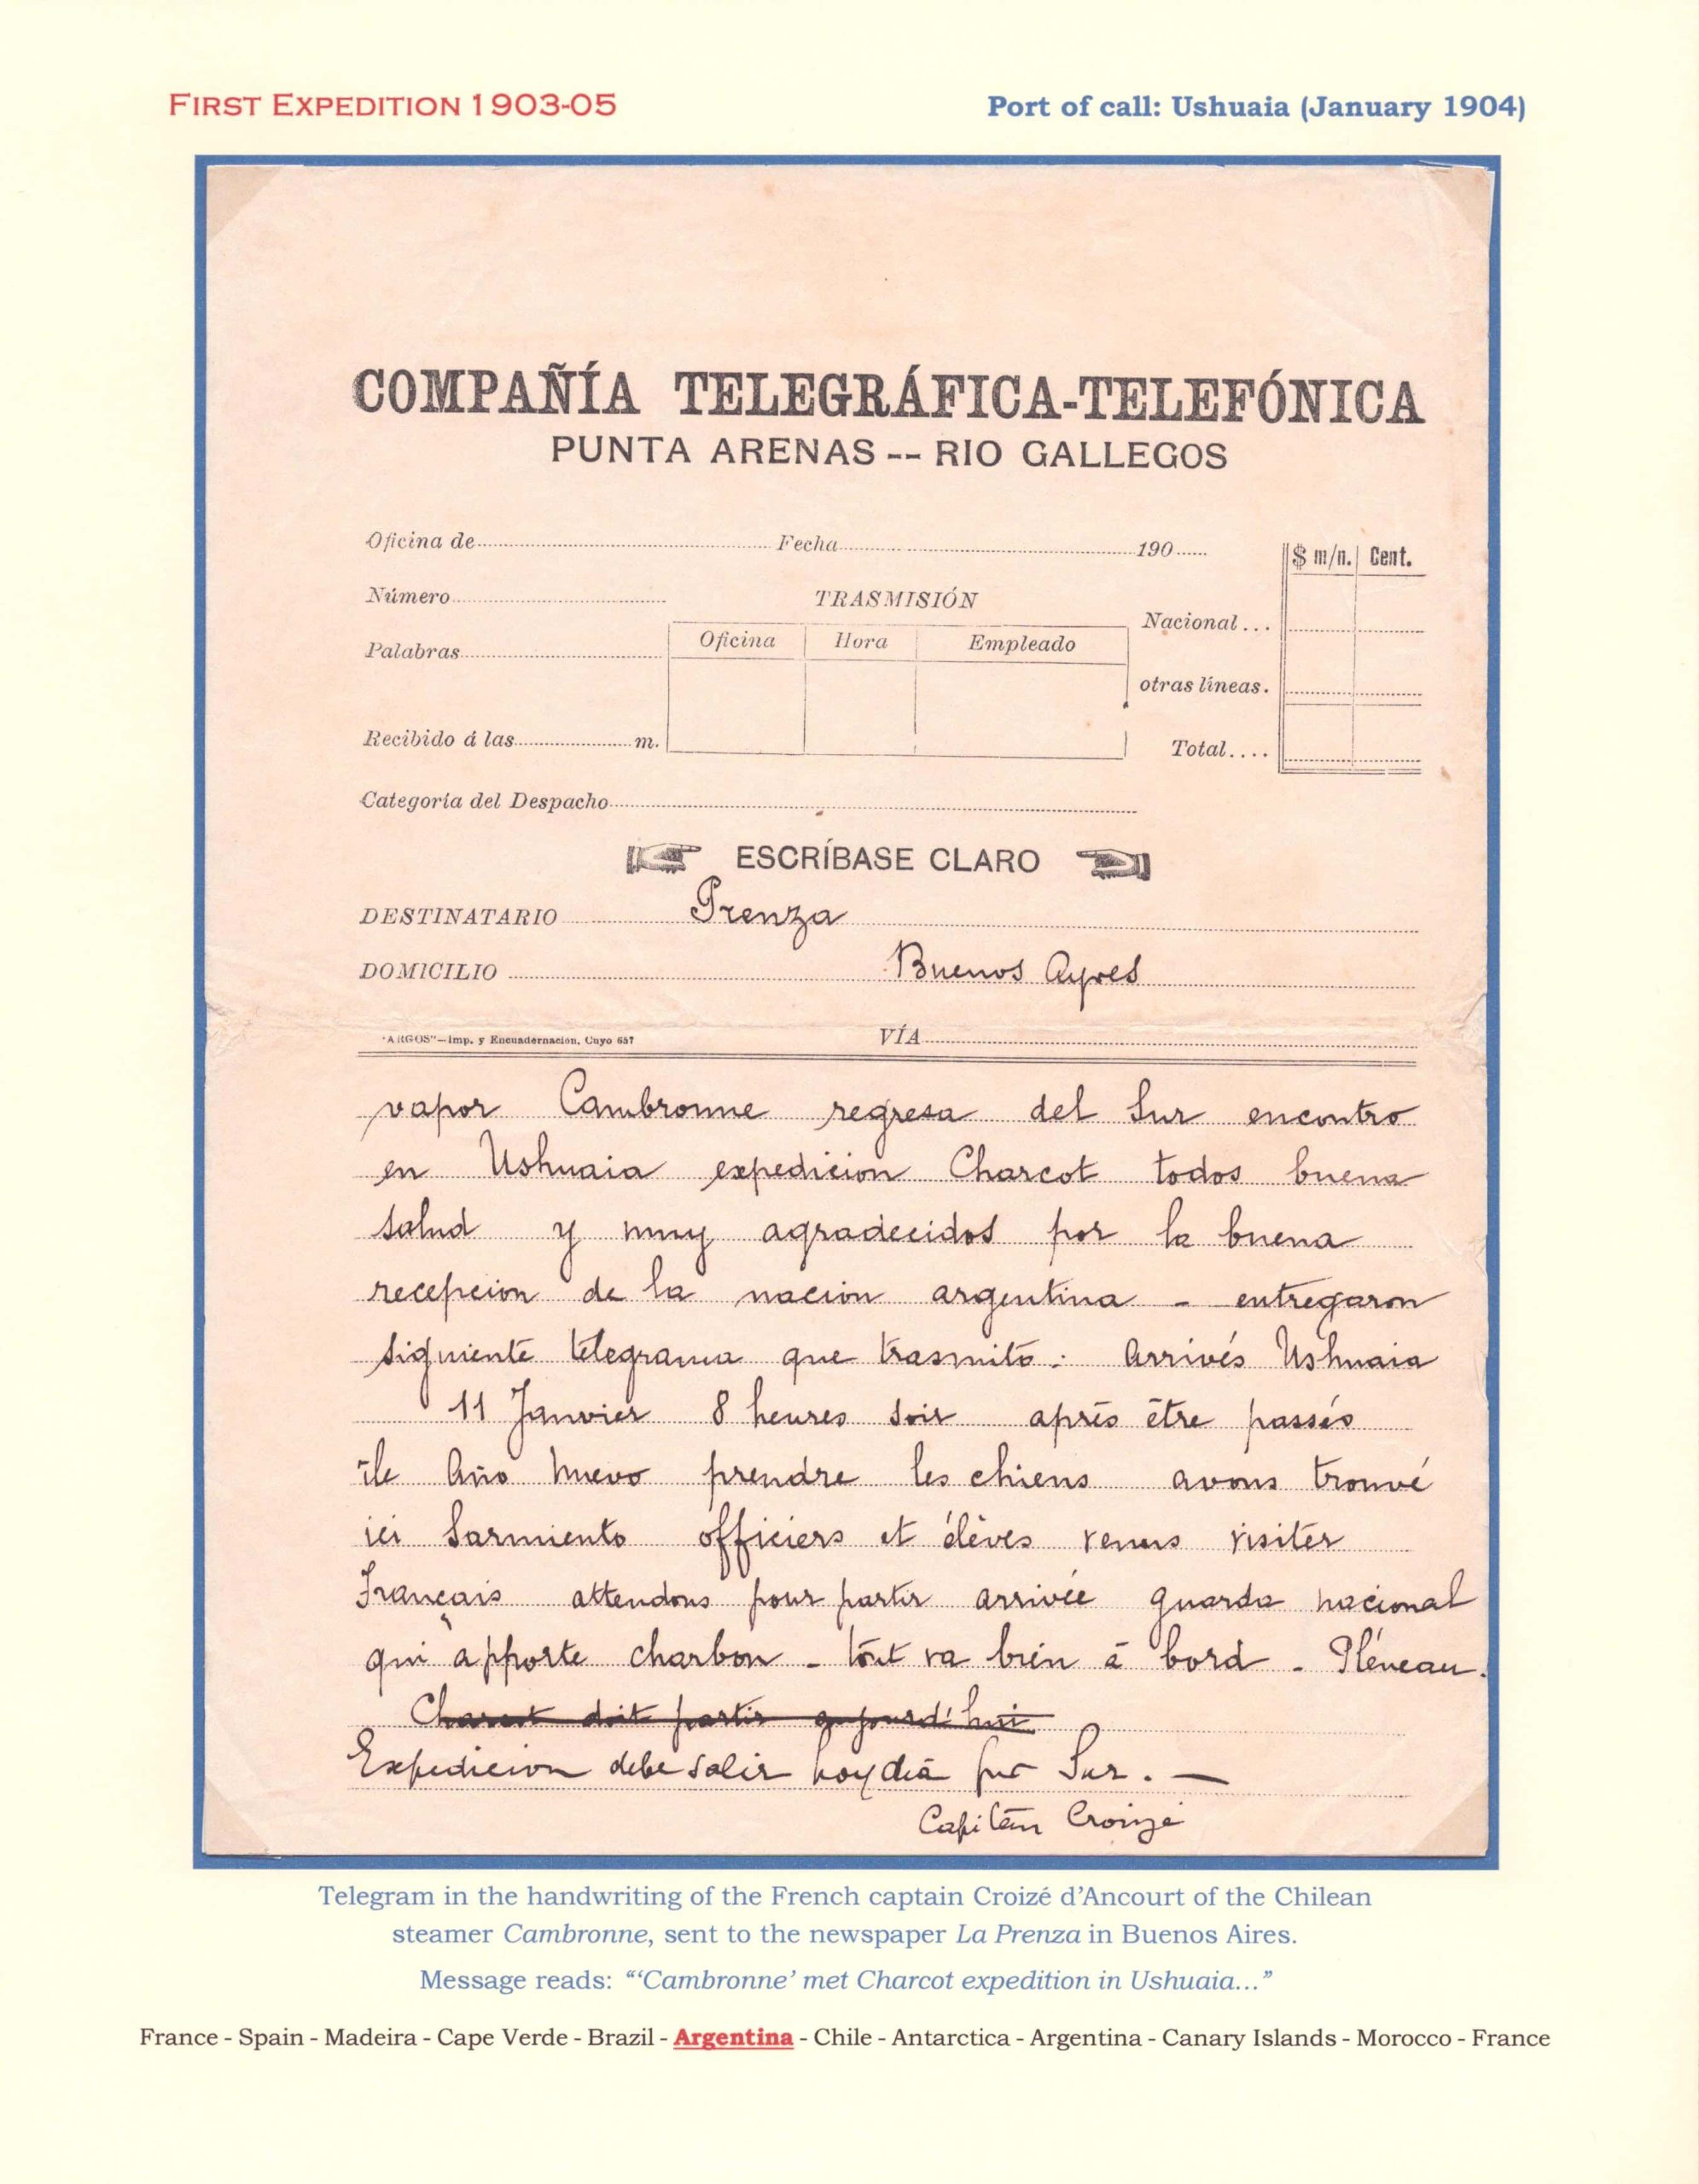 FIRST EXPEDITION 1903-05
Port of call: Ushuaia (January 1904)
COMPAÑÍA TELEGRÁFICA-TELEFÓNICA
PUNTA ARENAS -- RIO GALLEGOS
Oficina de Fecha 190
$ m/n. Cent.
Número
TRASMISIÓN
Nacional...
Palabras
Oficina Hora Empleado
otras líneas.
Recibido á las m.
Total....
Categoría del Despacho
ESCRÍBASE CLARO
DESTINATARIO Prenza
DOMICILIO Buenos Ayres
"ARGOS"—Imp. y Encuadernación, Cuyo 657
VÍA
vapor Cambronne regresa del Sur encontro
en Ushuaia expedicion Charcot todos buena
salud y muy agradecidos por la buena
recepcion de la nacion argentina - entregaron
siguiente telegrama que trasmito : Arrivés Ushuaia
11 Janvier 8 heures soir après être passés
île Año Nuevo prendre les chiens avons trouvé
ici Sarmiento officiers et élèves venus visiter
Français attendons pour partir arrivée guarda nacional
qui apporte charbon - tout va bien à bord - Pléneau.
Charcot doit partir aujourd'hui
Expedicion debe salir hoy dia por Sur. —
Capitán Croizé
Telegram in the handwriting of the French captain Croizé d'Ancourt of the Chilean
steamer Cambronne, sent to the newspaper La Prenza in Buenos Aires.
Message reads: "'Cambronne' met Charcot expedition in Ushuaia..."
France - Spain - Madeira - Cape Verde - Brazil - Argentina - Chile - Antarctica - Argentina - Canary Islands - Morocco - France